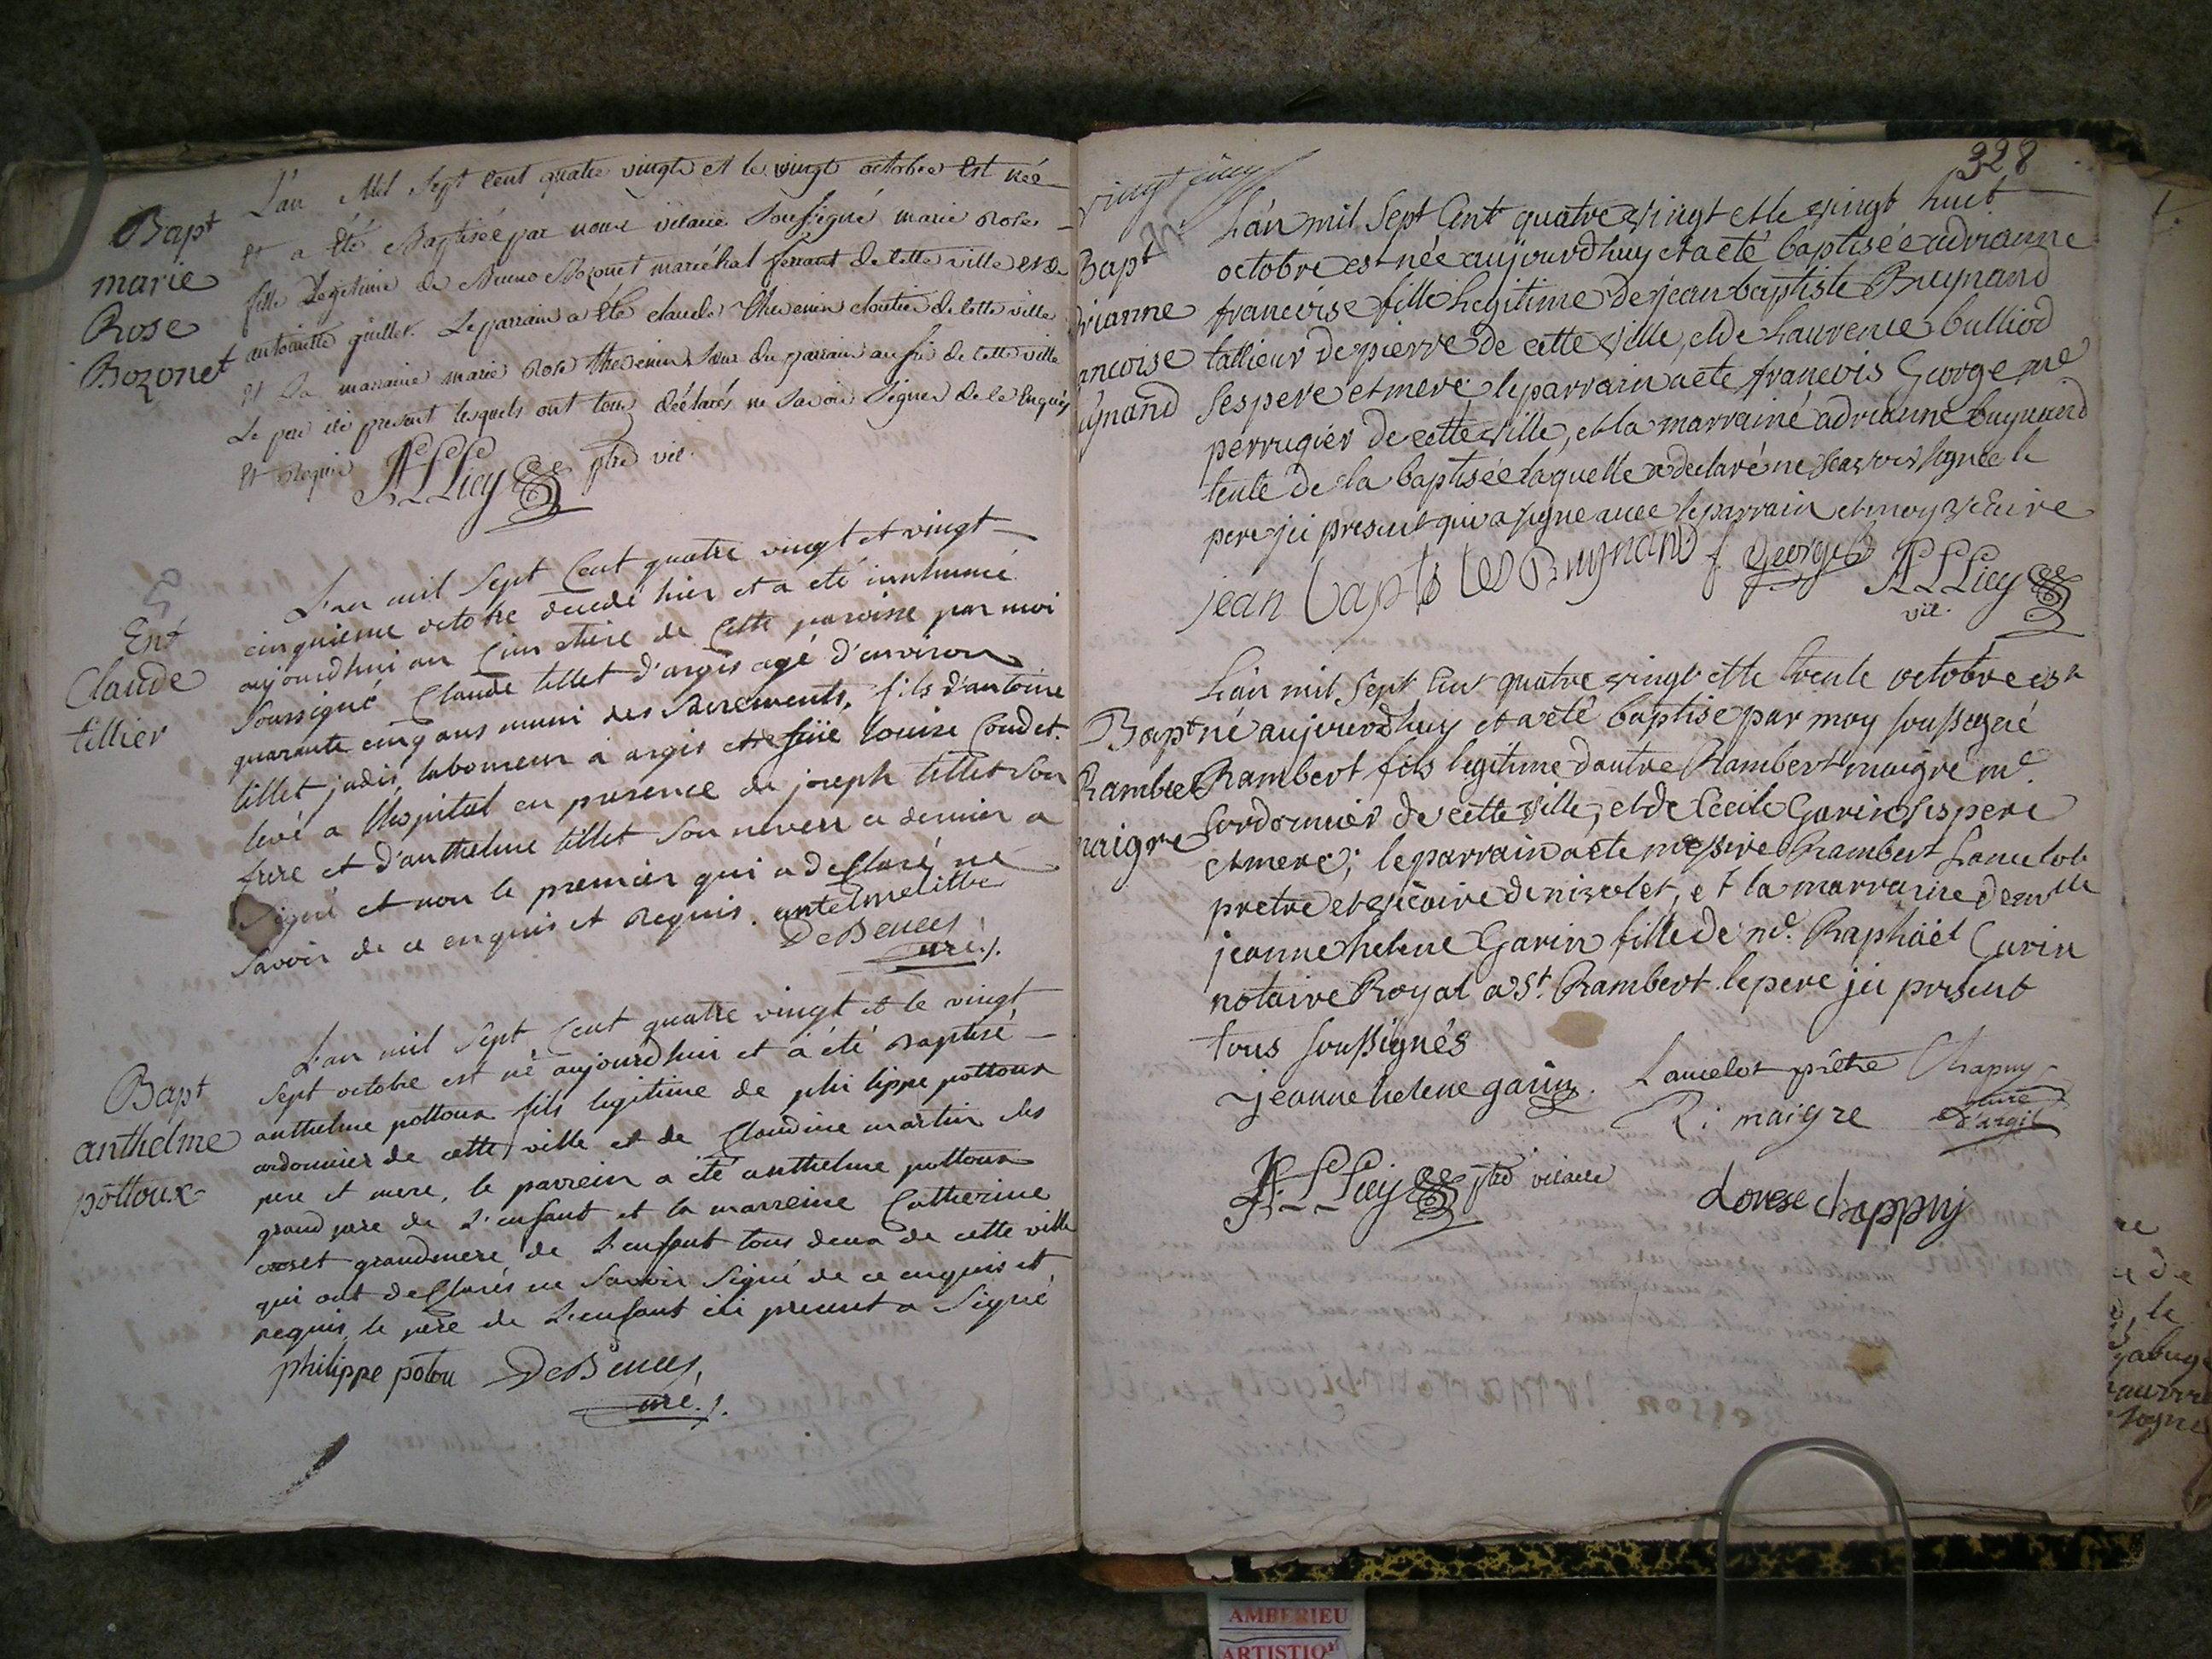 L'an Mil Sept Cent quatre vingt et le vingt octobre est née
Bapt
marie
Rose
Bozonet
et a été Baptisée par nous vicaire Soussigné marie Rose
fille Legitime de Bruno Bozonet maréchal ferrant de cette ville et de
antoinette guillet. Le parrain a été claude Thevenin cloutier de cette ville
et La marraine marie Rose thevenin Sœur du parrain aussi de cette ville
Le pere ici present lesquels ont tous déclarés ne Savoir Signer de ce Enquis
et Requis
ptre vic.
L'an mil Sept Cent quatre vingt et vingt
Ent
Claude
tillier
cinquieme octobre decedé hier et a été inhumé
aujourdhui au Cimetiere de Cette paroisse par moi
Soussigné Claude tillet d'argis agé d'environ
quarante cinq ans muni des Sacrements, fils d'antoine
tillet jadis laboureur à argis et de louise Coudet.
levé a l'hospital en presence de joseph tillet Son
frere et d'anthelme tillet Son neveu ce dernier a
Signé et non le premier qui a declaré ne
Savoir de ce enquis et Requis. antelme
DeBeney
curé ./.
L'an mil Sept Cent quatre vingt et le vingt
Bapt
anthelme
pottoux
Sept octobre est né aujourdhui et a été Baptisé
anthelme pottoux fils legitime de philippe pottoux
cordonnier de cette ville et de Claudine martin Ses
pere et mere, le parrein a été anthelme pottoux
grand pere de L'enfant et la marreine Catherine
grandmere de L'enfant tous deux de cette ville
qui ont declarés ne Savoir Signé de ce enquis et
requis, le père de L'enfant ici present a Signé
philippe potou DeBeney
curé ./.
328
vingt cinq
L'an mil Sept Cent quatre vingt et le vingt huit
Bapt
rianne
ancoise
ugnand
octobre est née aujourdhuy et a eté baptisée adrianne
francoise fille Legitime de jean baptiste Bugnand
tallieur de pierre de cette ville, et de Laurence bulliod
Ses pere et mere; le parrain a eté francois George me
perrugier de cette ville, et la marraine adrianne bugnand
tente de la baptisée laquelle a declaré ne Scavoir Signer le
pere ici present qui a signe avec le parrain et moy vicaire
jean Bapte Bugnand f George
vic.
L'an mil Sept Cent quatre vingt et le trente octobre est
Bapt
Rambert
maigre
né aujourdhuy et a eté baptise par moy soussigné
Rambert fils legitime d'autre Rambert maigre me
Cordonnier de cette ville, et de Cecile Garin Ses pere
et mere; le parrain a eté messire Rambert Lancelot
pretre et vicaire de nizolet, et la marraine demlle
jeanne helene Garin fille de me Raphäel Garin
notaire Royal a St Rambert le pere ici present
tous soussignés
jeanne helene garin. Lancelot prêtre Chapuy
curé
d'argis
R: maigre
ptre vicaire
Lovise chappuy
re
de
le
AMBERIEU
ARTISTIQ